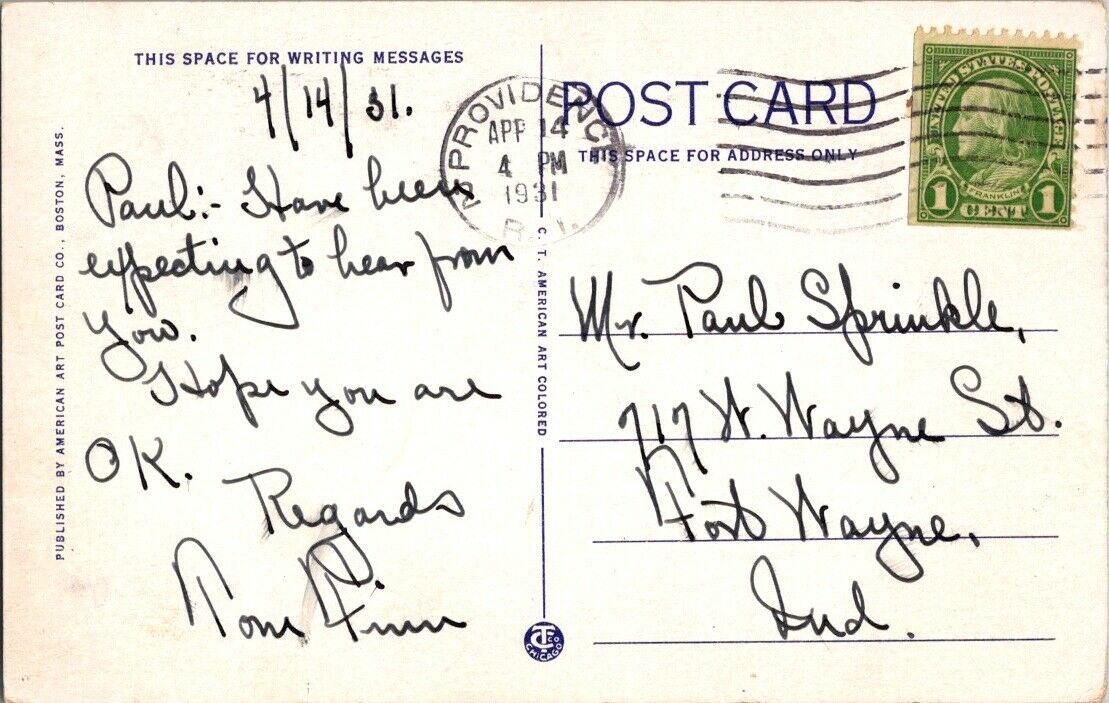 THIS SPACE FOR WRITING MESSAGES
4/14/31.
Paul:- Have been
expecting to hear from
you.
Hope you are
OK.
Regards
Tom Finn
PUBLISHED BY AMERICAN ART POST CARD CO., BOSTON, MASS.
C. T. AMERICAN ART COLORED
CT Co
CHICAGO
PROVIDENCE
APR 14
4 PM
1931
R.I.
POST CARD
THIS SPACE FOR ADDRESS ONLY
UNITED STATES POSTAGE
FRANKLIN
1 CENT 1
Mr. Paul Sprinkle,
717 W. Wayne St.
Fort Wayne,
Ind.